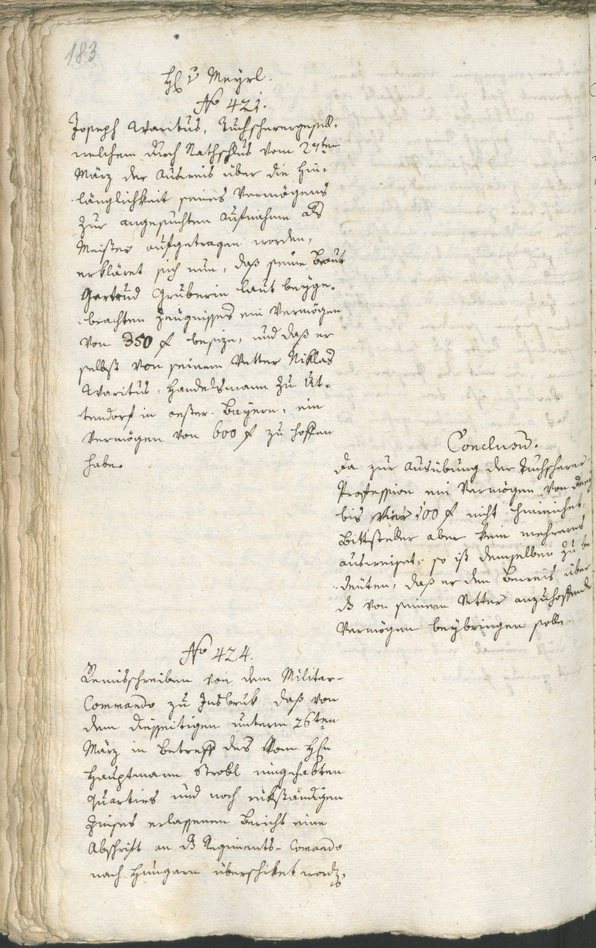 183
Hr v Meyrl.
No 421.
Joseph Waritus, Tuchscherergesell,
welchem durch Rathschlus vom 29ten
März der Ausweis über die Hin-
länglichkeit seines Vermögens
zur angesuchten Aufnahme als
Meister aufgetragen worden,
erkläret sich nun, daß seine Braut
Gertrud Gruberin laut beyge-
brachten Zeugnisses ein Vermögen
von 350 f besize, und daß er
selbst von seinem Vetter Niklas
Waritus, Handelsmann zu Ut-
tendorf in oester. Bayern, ein
Vermögen von 600 f zu hoffen
habe.
Conclusu.
Da zur Ausübung der Tuchscherer
Profession ein Vermögen von
bis vier 100 f nicht hinreichet,
Bittsteller aber kein mehreres
ausweiset; so ist demselben zu be-
deuten, daß er den Beweis über
das von seinem Vetter anzuhoffende
Vermögen beybringen solle.
No 424.
Remisschreiben von dem Militar-
Commando zu Insbruk, daß von
dem diesseitigen unterm 26ten
März in Betreff des vom Hrn
Hauptmann Strobl eingehabten
Quartiers und noch rükständigen
Zinses erlassenen Bericht eine
Abschrift an das Regiments-Comando
nach Hungarn überschiket word